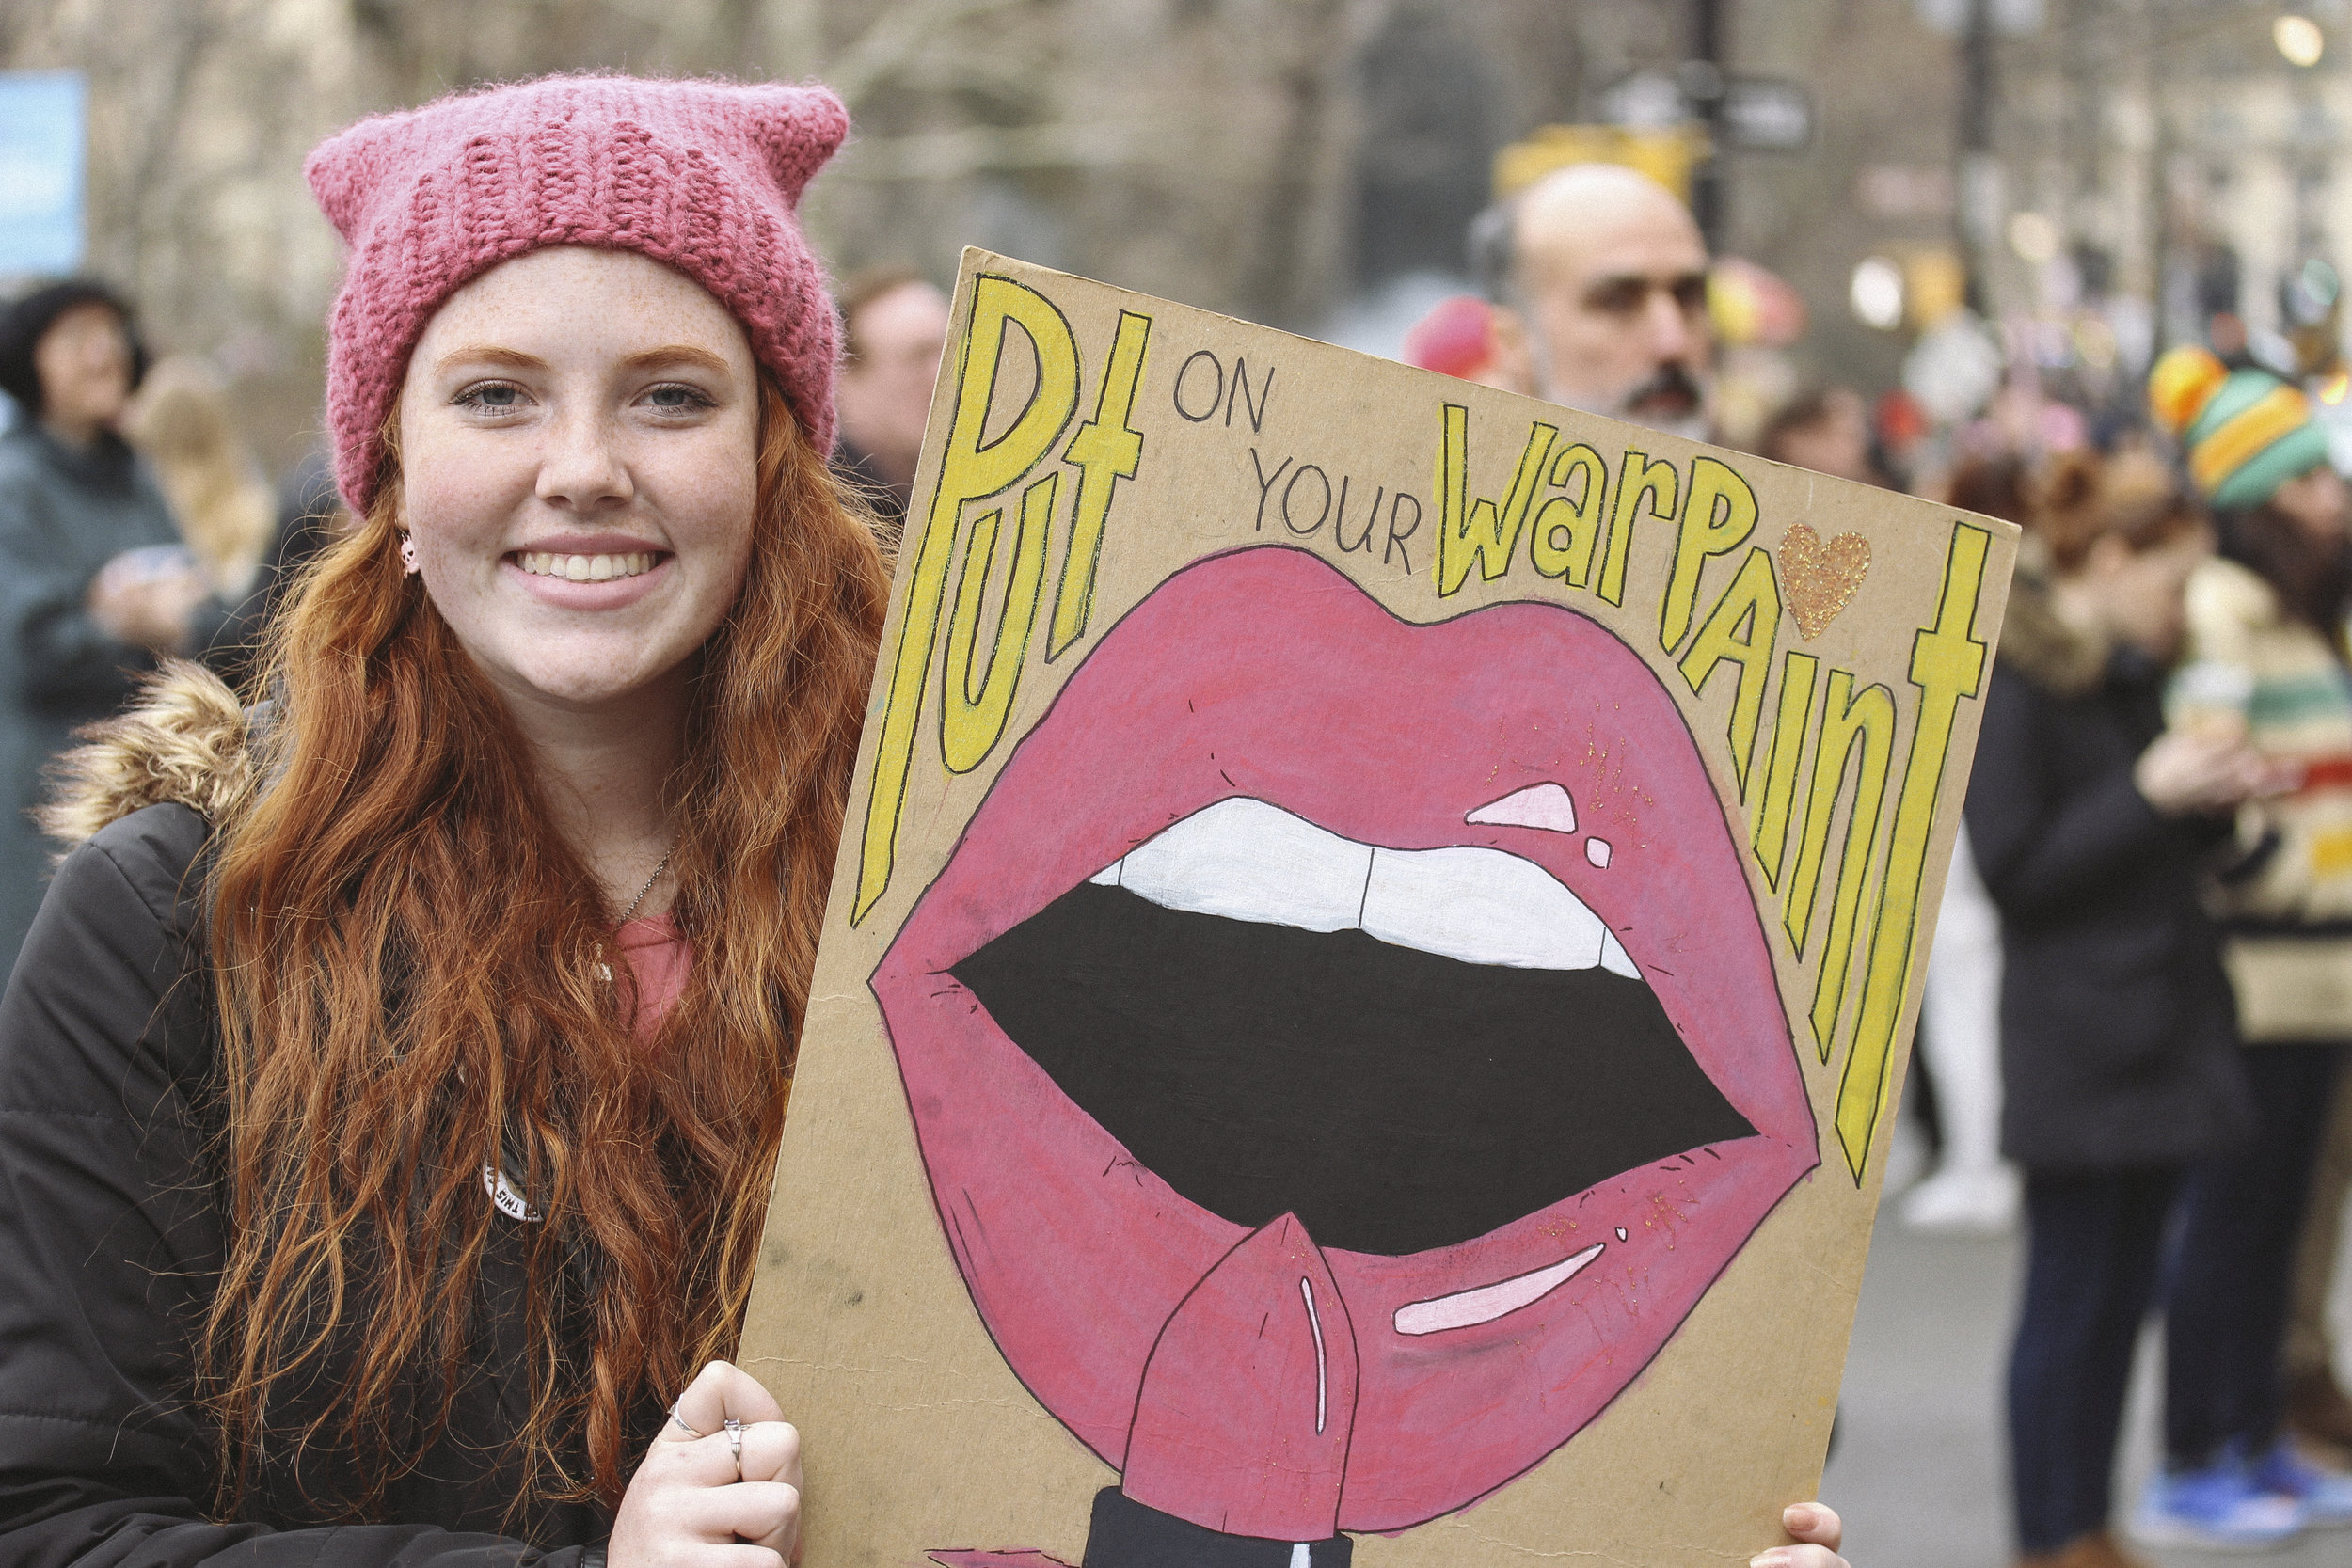 Put ON
YOUR WarPAint
THIS